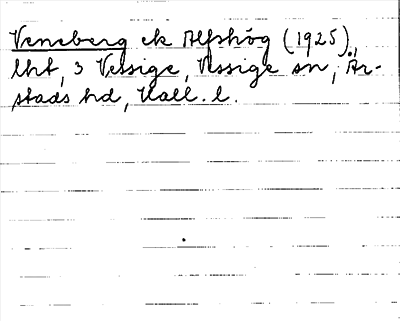 Veneberg ek Alfshög (1925),
lht, 3 Vessige, Vessige sn, År-
stads hd, Hall. l.